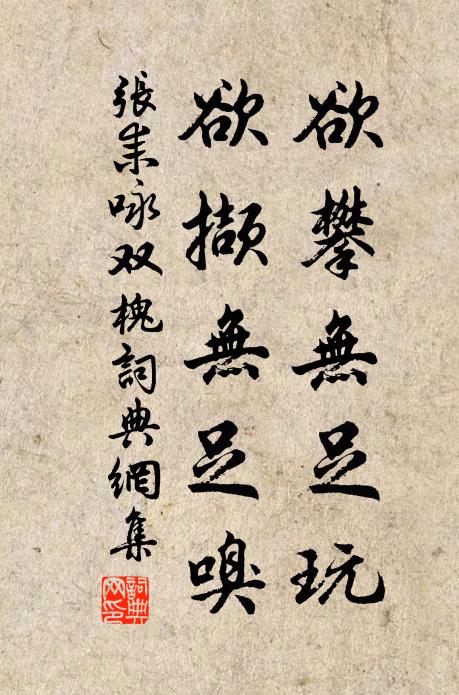 欲攀無足玩
欲擷無足嗅
張耒咏双槐詞典網集
詞典网印